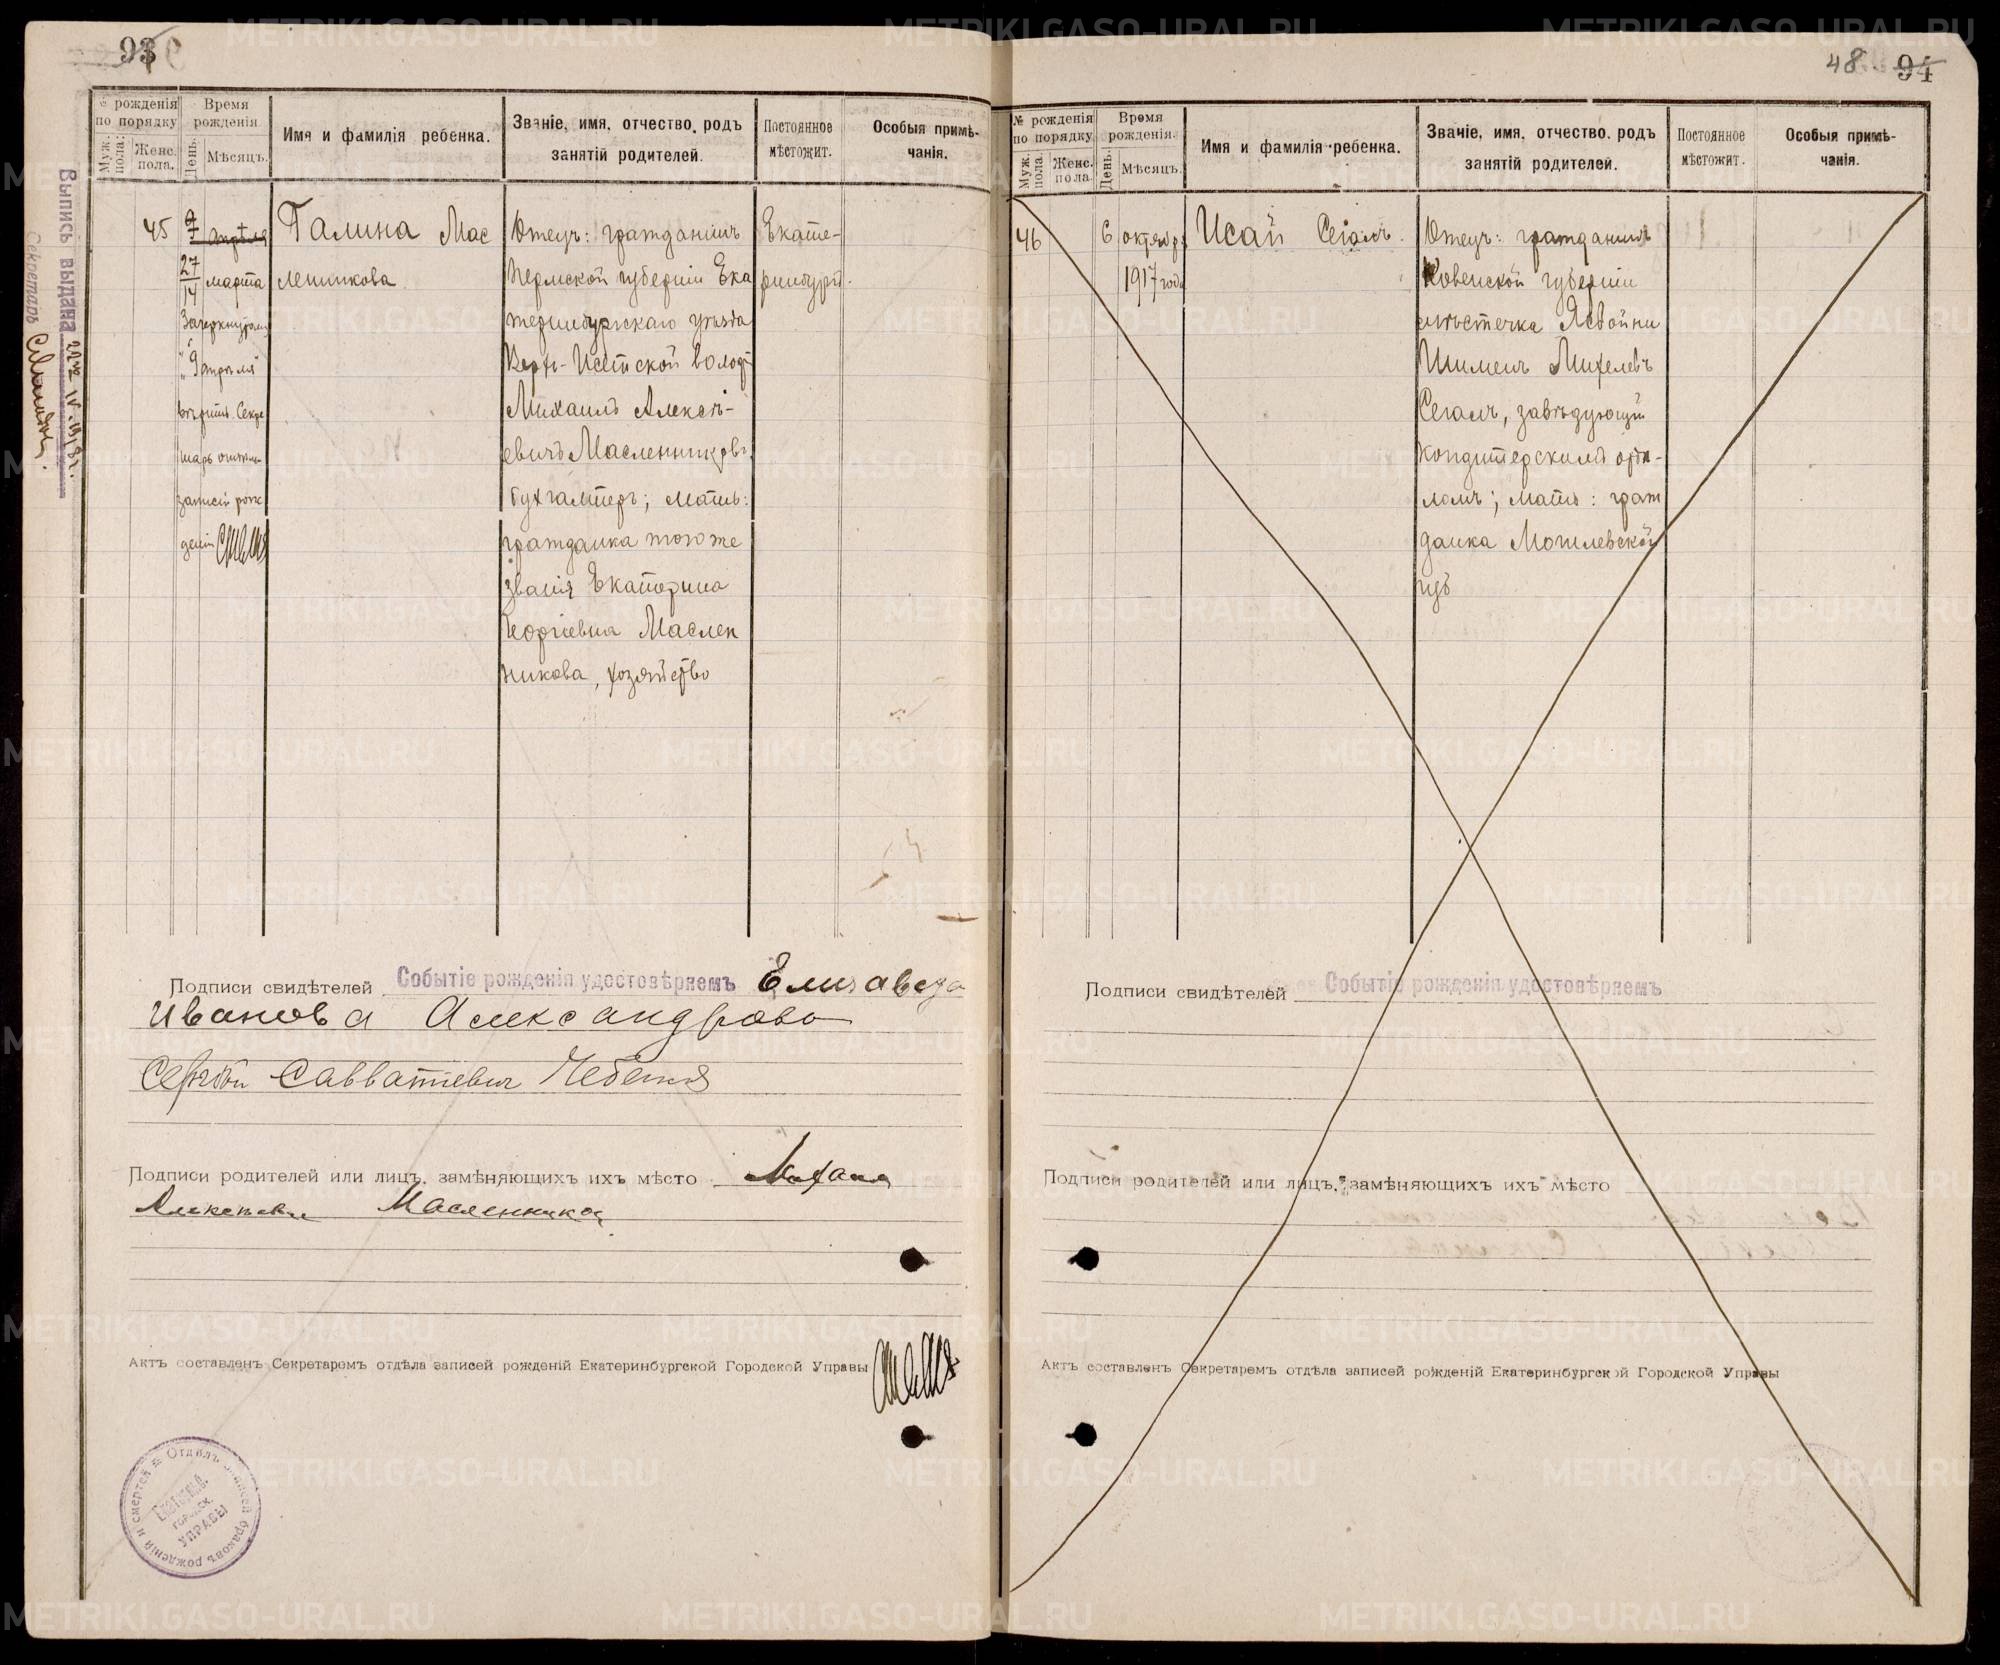 93
№ рожденія по порядку
Время рожденія
Муж. пола.
Женс. пола.
День.
Мѣсяцъ.
Имя и фамилія ребенка.
Званіе, имя, отчество, родъ
занятій родителей.
Постоянное
мѣстожит.
Особыя примѣ-
чанія.
45
апрѣля
27
14
марта
Галина Мас
ленникова
Отецъ: гражданинъ
Пермской губерніи Ека
теринбургскаго уѣзда
Верхъ-Исетской волос
Михаилъ Алексѣ-
евичъ Масленниковъ,
бухгалтеръ; мать:
гражданка того же
званія Екатерина
Георгіевна Маслен
никова, хозяйство
Екате-
ринбургъ.
Зачеркнутому
"9 апрѣля
вѣрить. Секре
тарь отдѣла
записей рож
деній
Выпись выдана 22го IV. 1918 г.
Секретарь
Подписи свидѣтелей Событіе рожденія удостовѣряемъ Елизавета
Иванова Александрова
Сергѣй Савватіевич
Подписи родителей или лицъ, замѣняющихъ ихъ мѣсто Михаил
Алексѣевич Масленников
Актъ составленъ Секретаремъ отдѣла записей рожденій Екатеринбургской Городской Управы
Отдѣлъ записей браковъ рожденій и смертей
Екатеринб.
городск.
управы
48
94
№ рожденія по порядку
Время рожденія.
Муж. пола.
Женс. пола.
День.
Мѣсяцъ.
Имя и фамилія ребенка.
Званіе, имя, отчество, родъ
занятій родителей.
Постоянное
мѣстожит.
Особыя примѣ-
чанія.
46
6
октябр.
1917 года
Исай Сегалъ.
Отецъ: гражданинъ
Ковенской губерніи
мѣстечка Ясвойни
Шименъ Михелевъ
Сегалъ, завѣдующій
кондитерскимъ отдѣ-
ломъ; мать: граж
данка Могилевской
губ
Подписи свидѣтелей Событіе рожденія удостовѣряемъ
Подписи родителей или лицъ, замѣняющихъ ихъ мѣсто
Актъ составленъ Секретаремъ отдѣла записей рожденій Екатеринбургской Городской Управы
METRIKI.GASO-URAL.RU